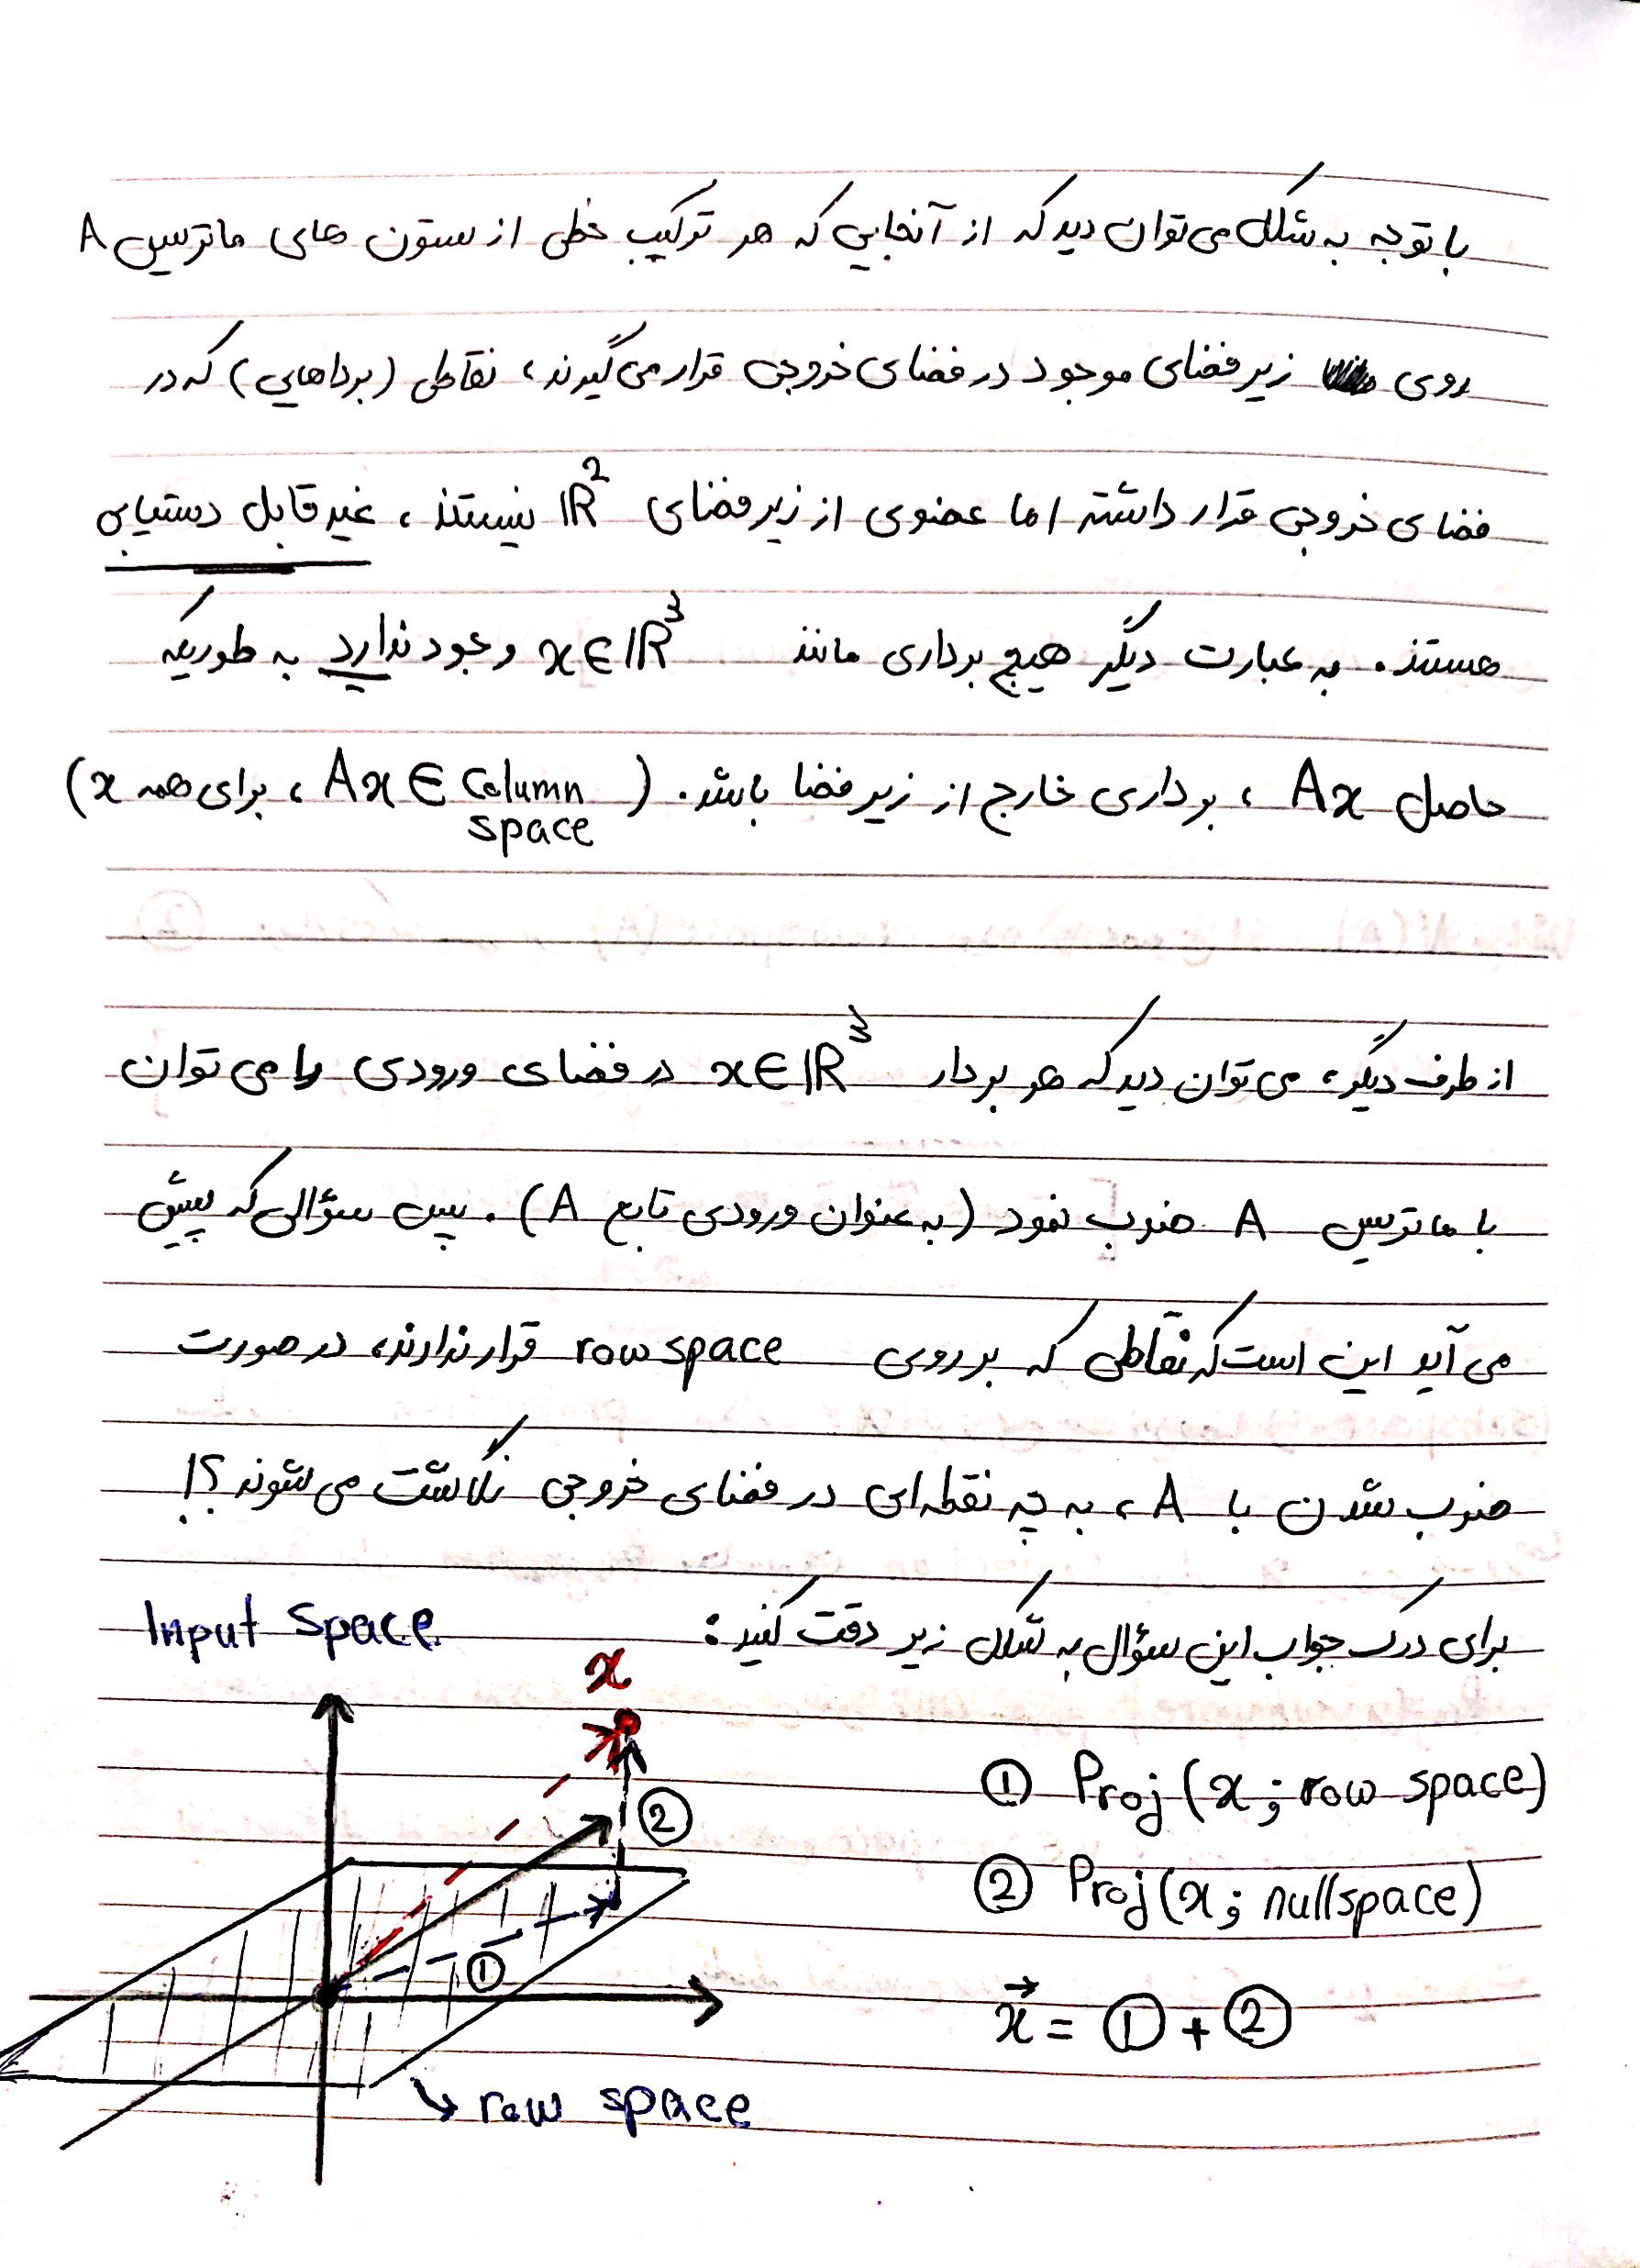 با توجه به شکل می‌توان دید که از آنجایی که هر ترکیب خطی از ستون های ماتریس A
روی زیر فضای موجود در فضای خروجی قرار می‌گیرند، نقاطی (بردارهایی) که در
فضای خروجی قرار داشته اما عضوی از زیر فضای IR² نیستند، غیر قابل دستیابی
هستند. به عبارت دیگر هیچ برداری مانند x∈IR³ وجود ندارد به طوریکه
حاصل Ax، برداری خارج از زیر فضا باشد. (Ax ∈ Column space، برای همه x)
از طرف دیگر، می‌توان دید که هر بردار x∈IR³ در فضای ورودی را می توان
با ماتریس A ضرب نمود (به عنوان ورودی تابع A). پس سؤالی که پیش
می آید این است که نقاطی که بر روی row space قرار ندارند، در صورت
ضرب شدن با A، به چه نقطه‌ای در فضای خروجی نگاشت می شوند؟!
برای درک جواب این سؤال به شکل زیر دقت کنید:
Input Space
x
① Proj(x; row space)
②
② Proj(x; nullspace)
①
x⃗ = ① + ②
↳ row space